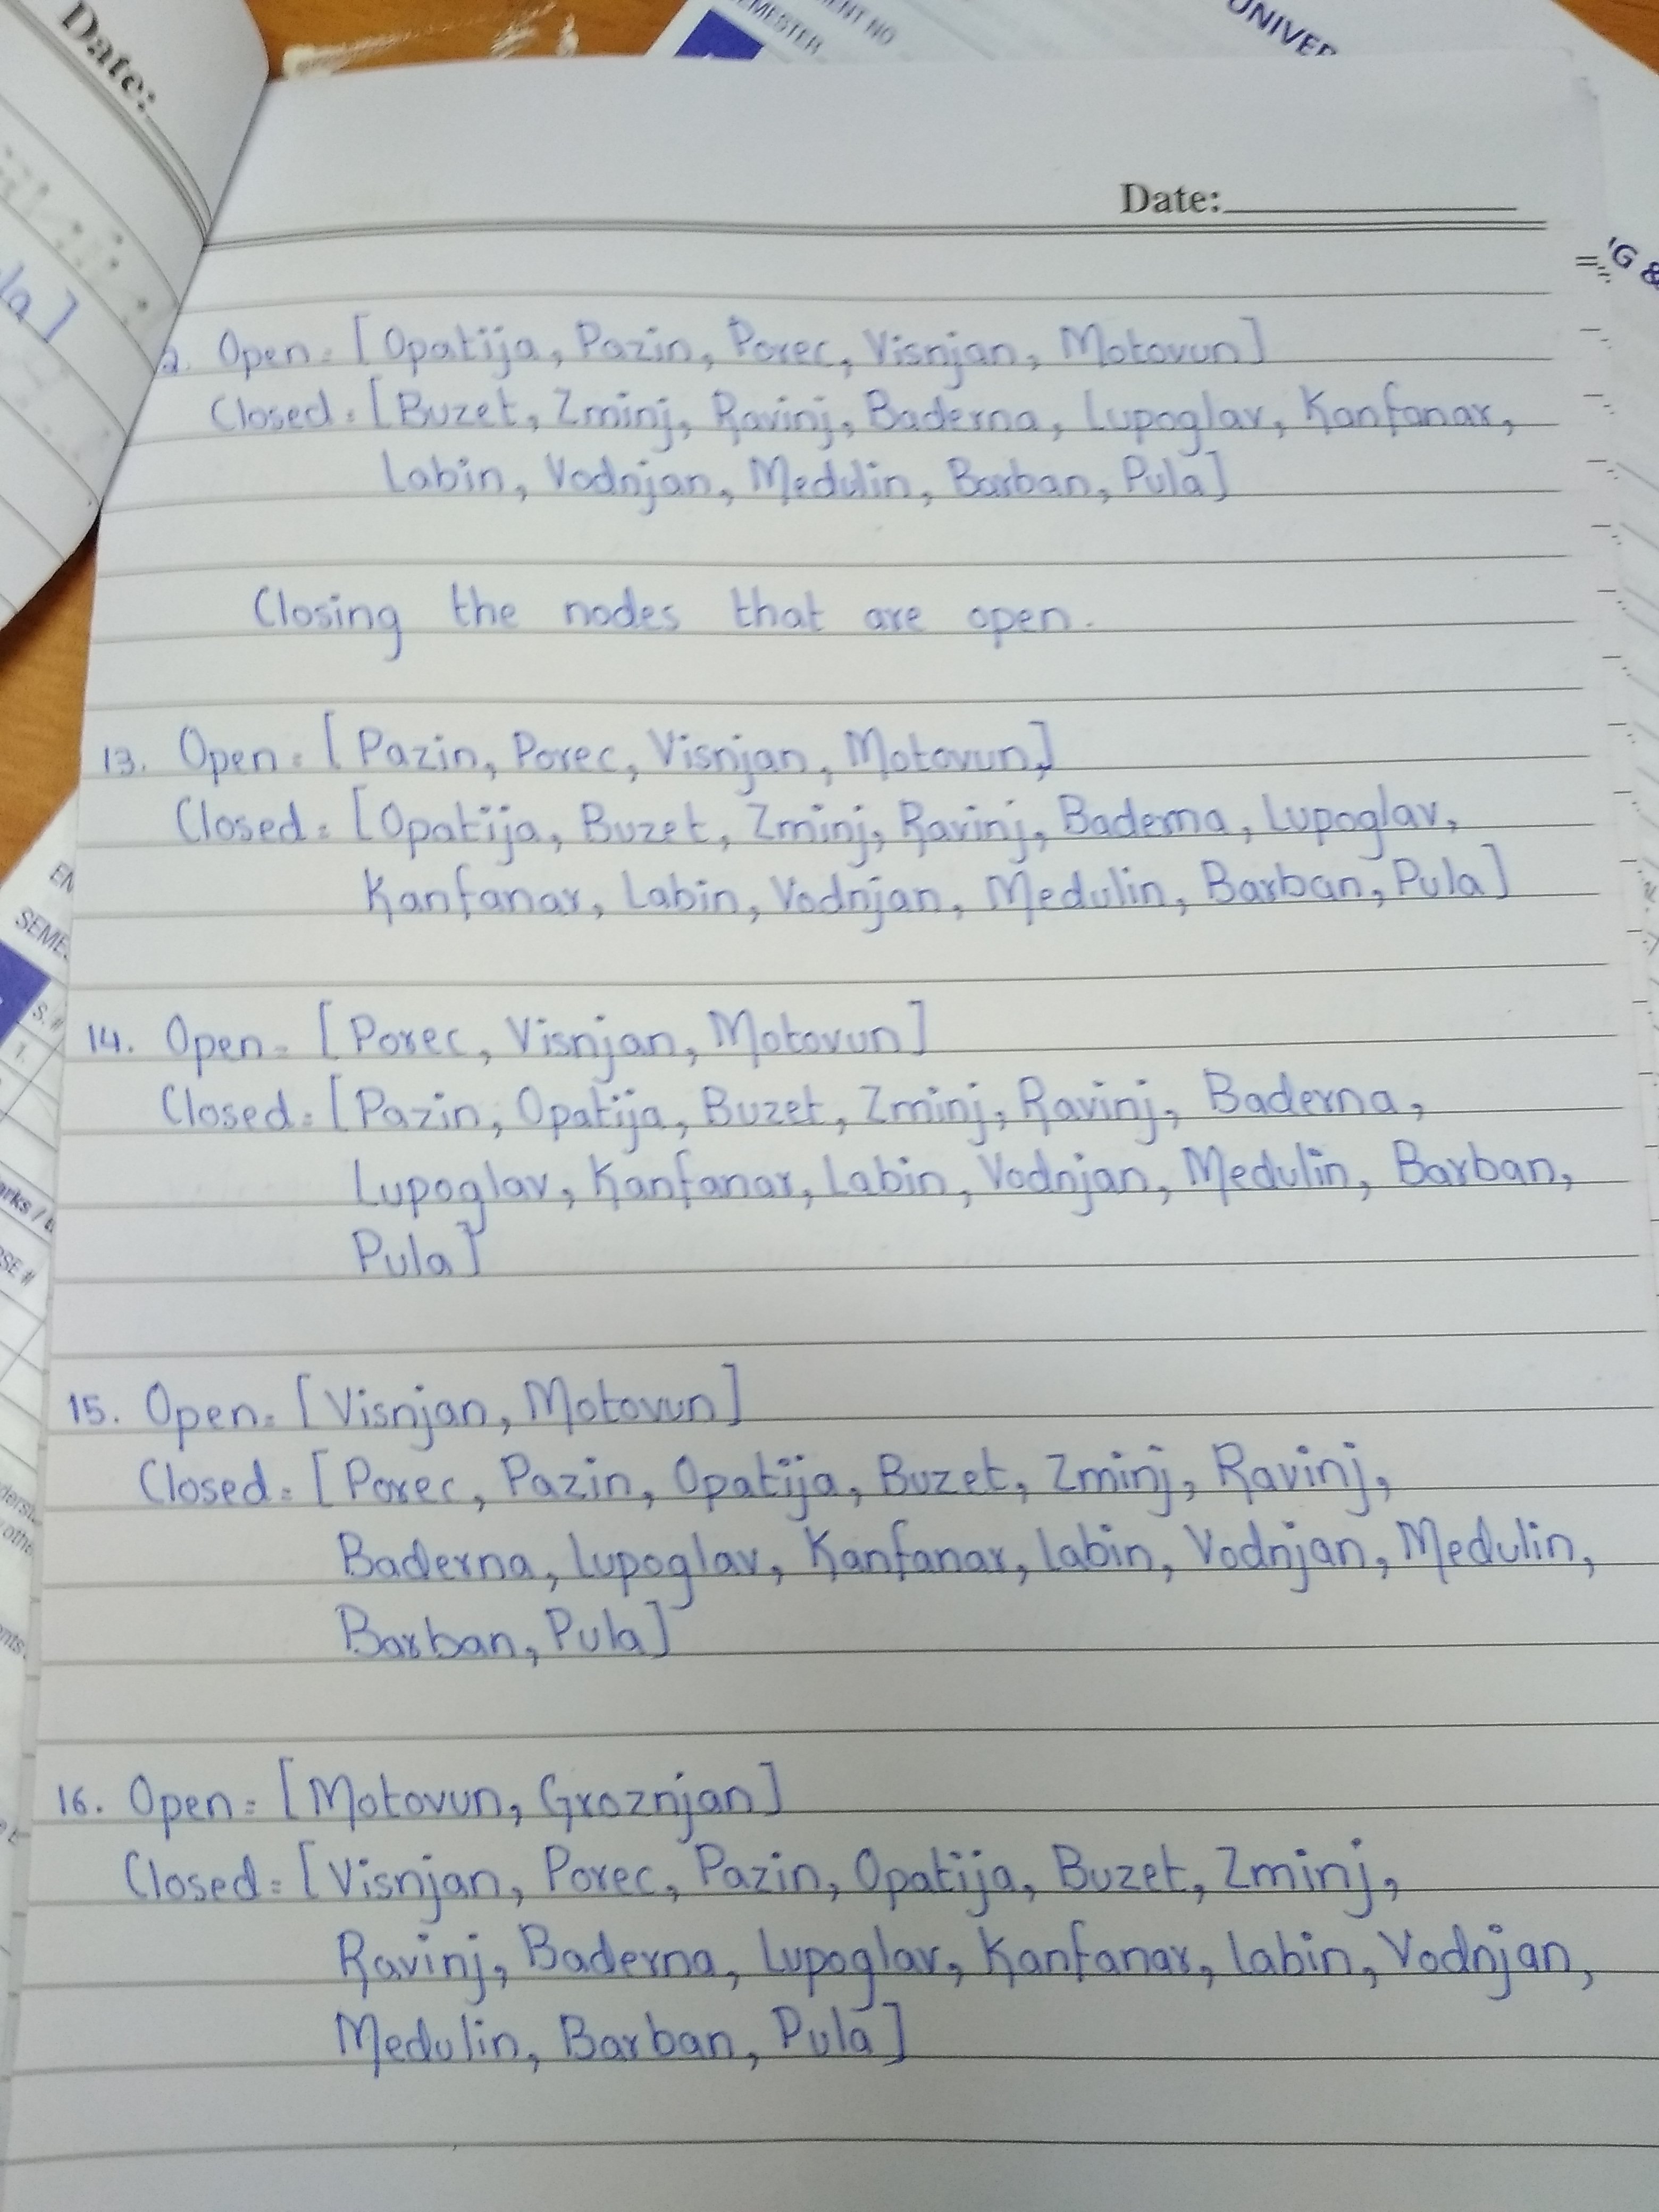 Date:
ENT NO
EMESTER
UNIVER
Date:
'G &
la]
2. Open = [Opatija, Pazin, Porec, Visnjan, Motovun]
Closed = [Buzet, Zminj, Ravinj, Baderna, Lupoglav, Kanfanar,
Labin, Vodnjan, Medulin, Barban, Pula]
Closing the nodes that are open.
13. Open = [Pazin, Porec, Visnjan, Motovun,]
Closed = [Opatija, Buzet, Zminj, Ravinj, Baderna, Lupoglav,
Kanfanar, Labin, Vodnjan, Medulin, Barban, Pula]
EN
SEME
S. #
1.
14. Open = [Porec, Visnjan, Motovun]
Closed = [Pazin, Opatija, Buzet, Zminj, Ravinj, Baderna,
Lupoglav, Kanfanar, Labin, Vodnjan, Medulin, Barban,
Pula]
arks /
SE #
15. Open = [Visnjan, Motovun]
Closed = [Porec, Pazin, Opatija, Buzet, Zminj, Ravinj,
Baderna, Lupoglav, Kanfanar, Labin, Vodnjan, Medulin,
Barban, Pula]
16. Open = [Motovun, Groznjan]
Closed = [Visnjan, Porec, Pazin, Opatija, Buzet, Zminj,
Ravinj, Baderna, Lupoglav, Kanfanar, Labin, Vodnjan,
Medulin, Barban, Pula]